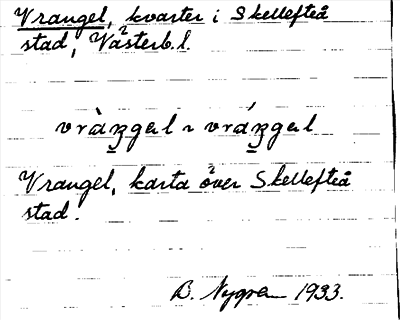 Vrangel, kvarter i Skellefteå
stad, Västerb. l.
vràŋgəl ~ vráŋgəl
Vrangel, karta över Skellefteå
stad.
B. Nygren 1933.